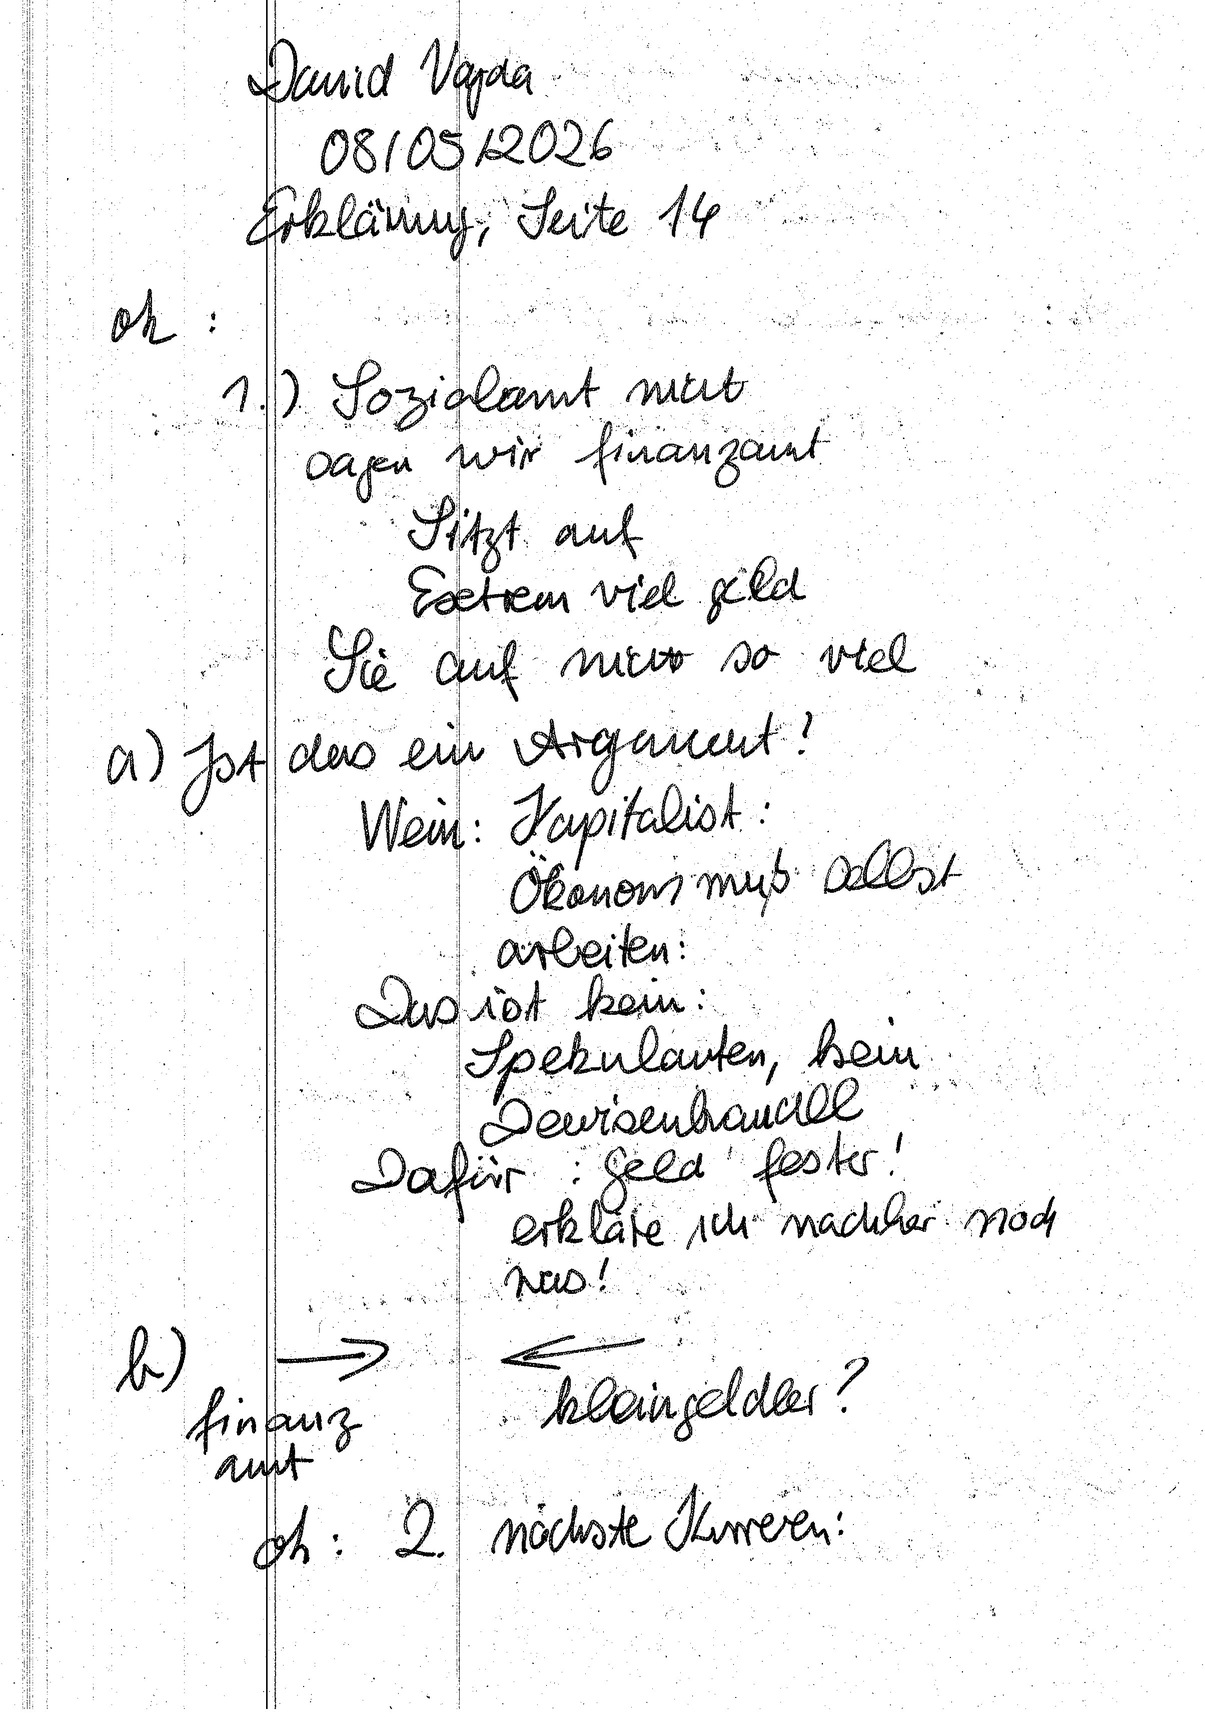 David Vajda
08/05/2026
Erklärung, Seite 14
ok :
1.) Sozialamt nicht
sagen wir finanzamt
Sitzt auf
Extrem viel geld
Sie auf nicht so viel
a) Ist das ein Argument?
Wein: Kapitalist:
Ökonom muß selbst
arbeiten:
Das ist kein:
Spekulanten, kein
Devisenhandel
Dafür : geld fester!
erkläre ich nachher noch
was!
b) → ←
finanz kleingeldler?
amt
ok: 2. nächste Kurven: